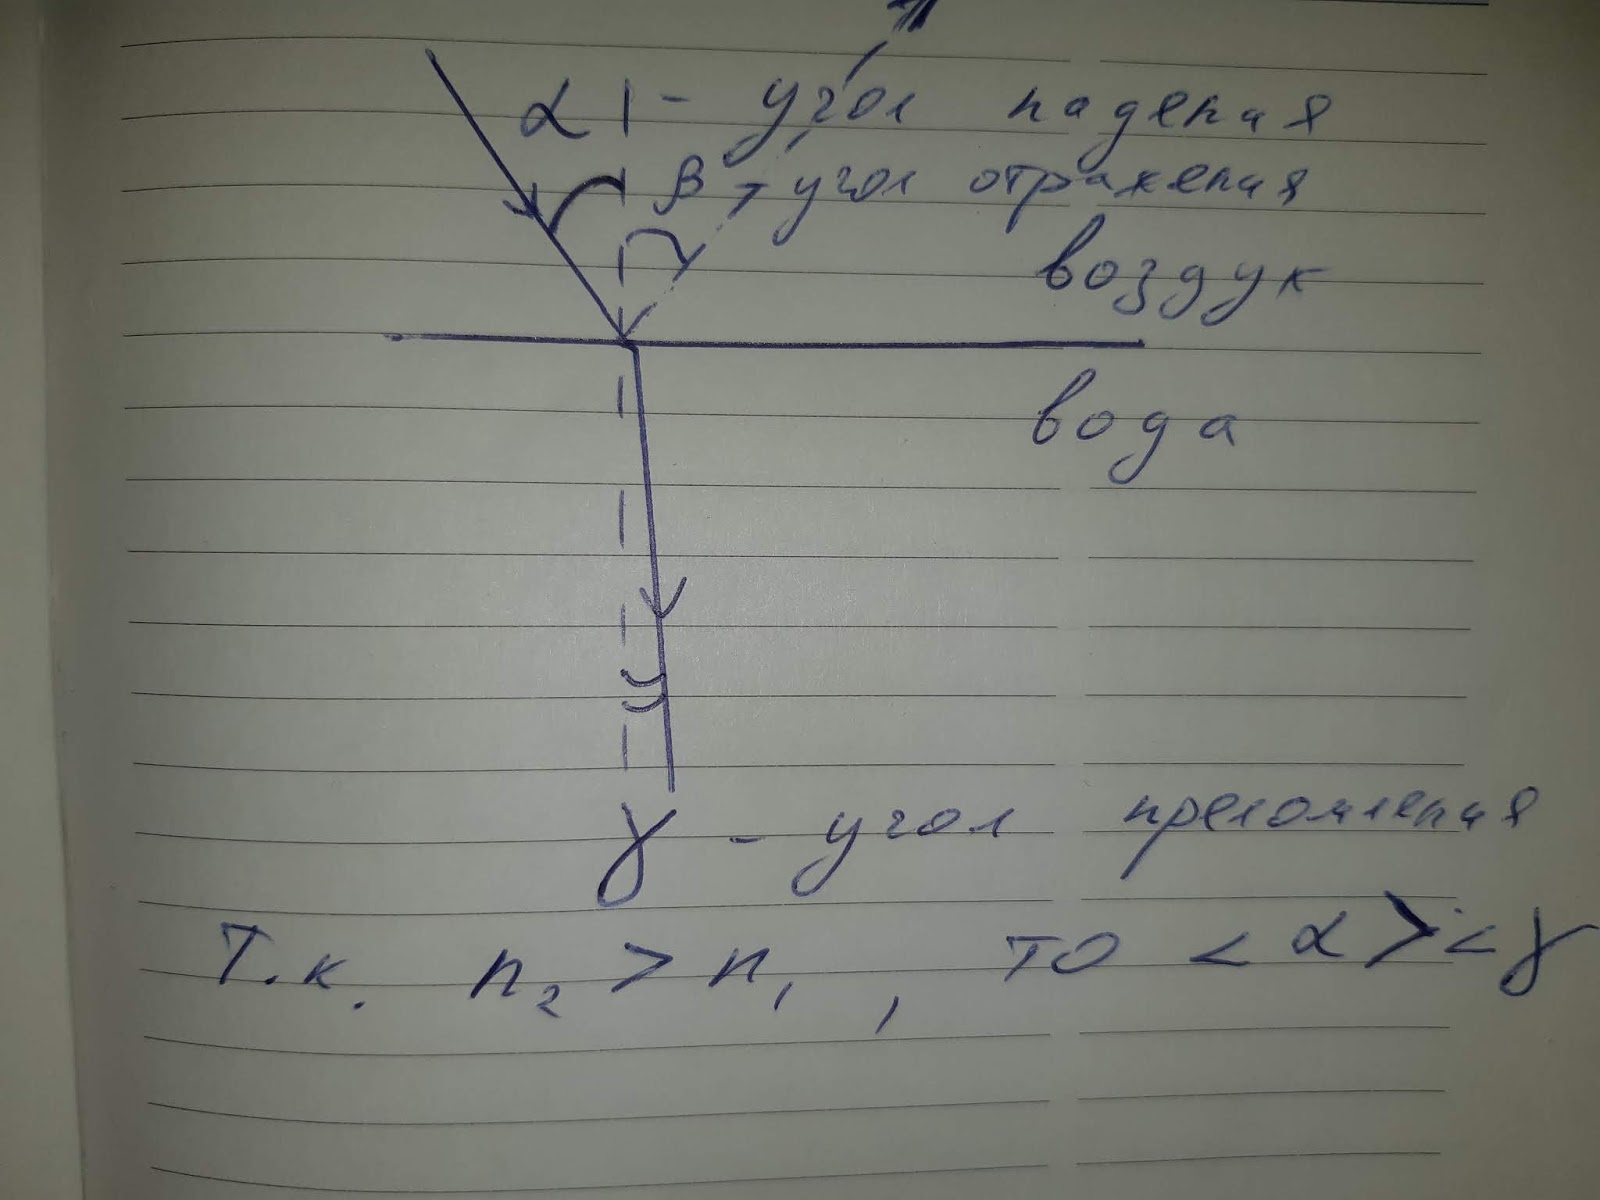 α - угол падения
β - угол отражения
воздух
вода
γ - угол преломления
Т.к. n₂ > n₁, то < α > < γ